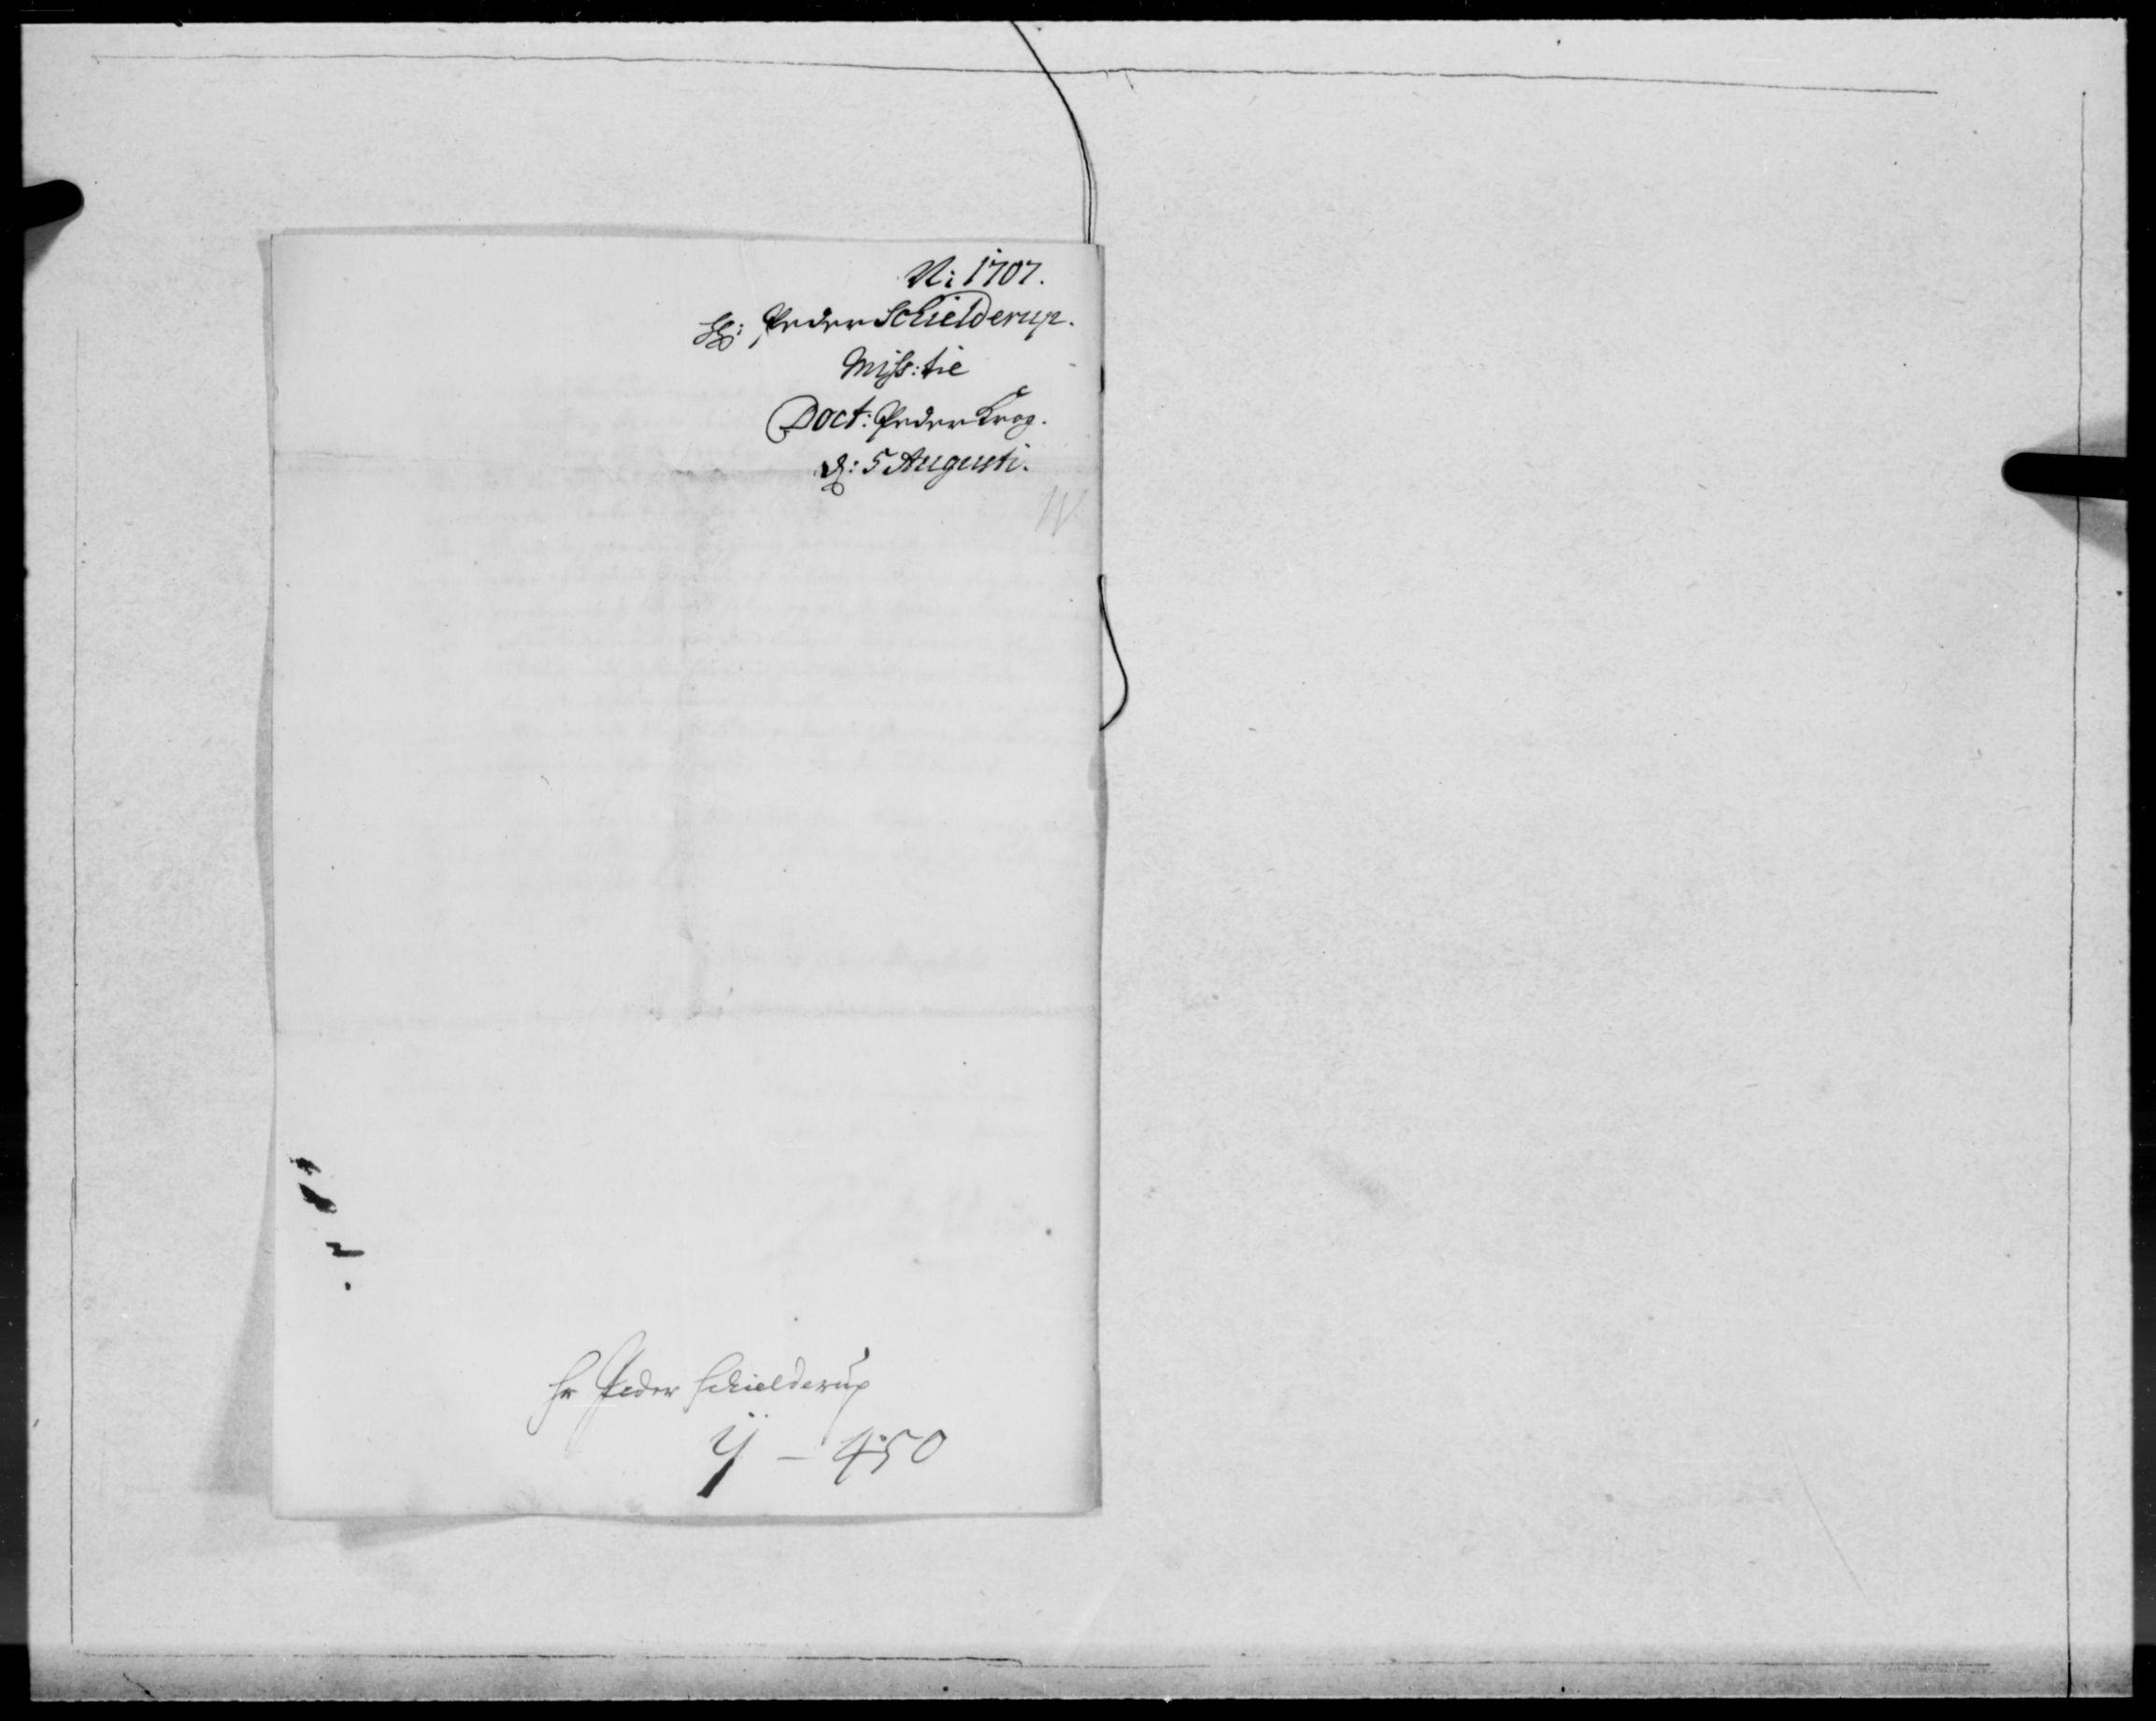 N: 1707.
H: Peder Schielderup.
Miss: tie
Doct: Peder Krog.
d: 5 Augusti.
Hr Peder Schielderup
450